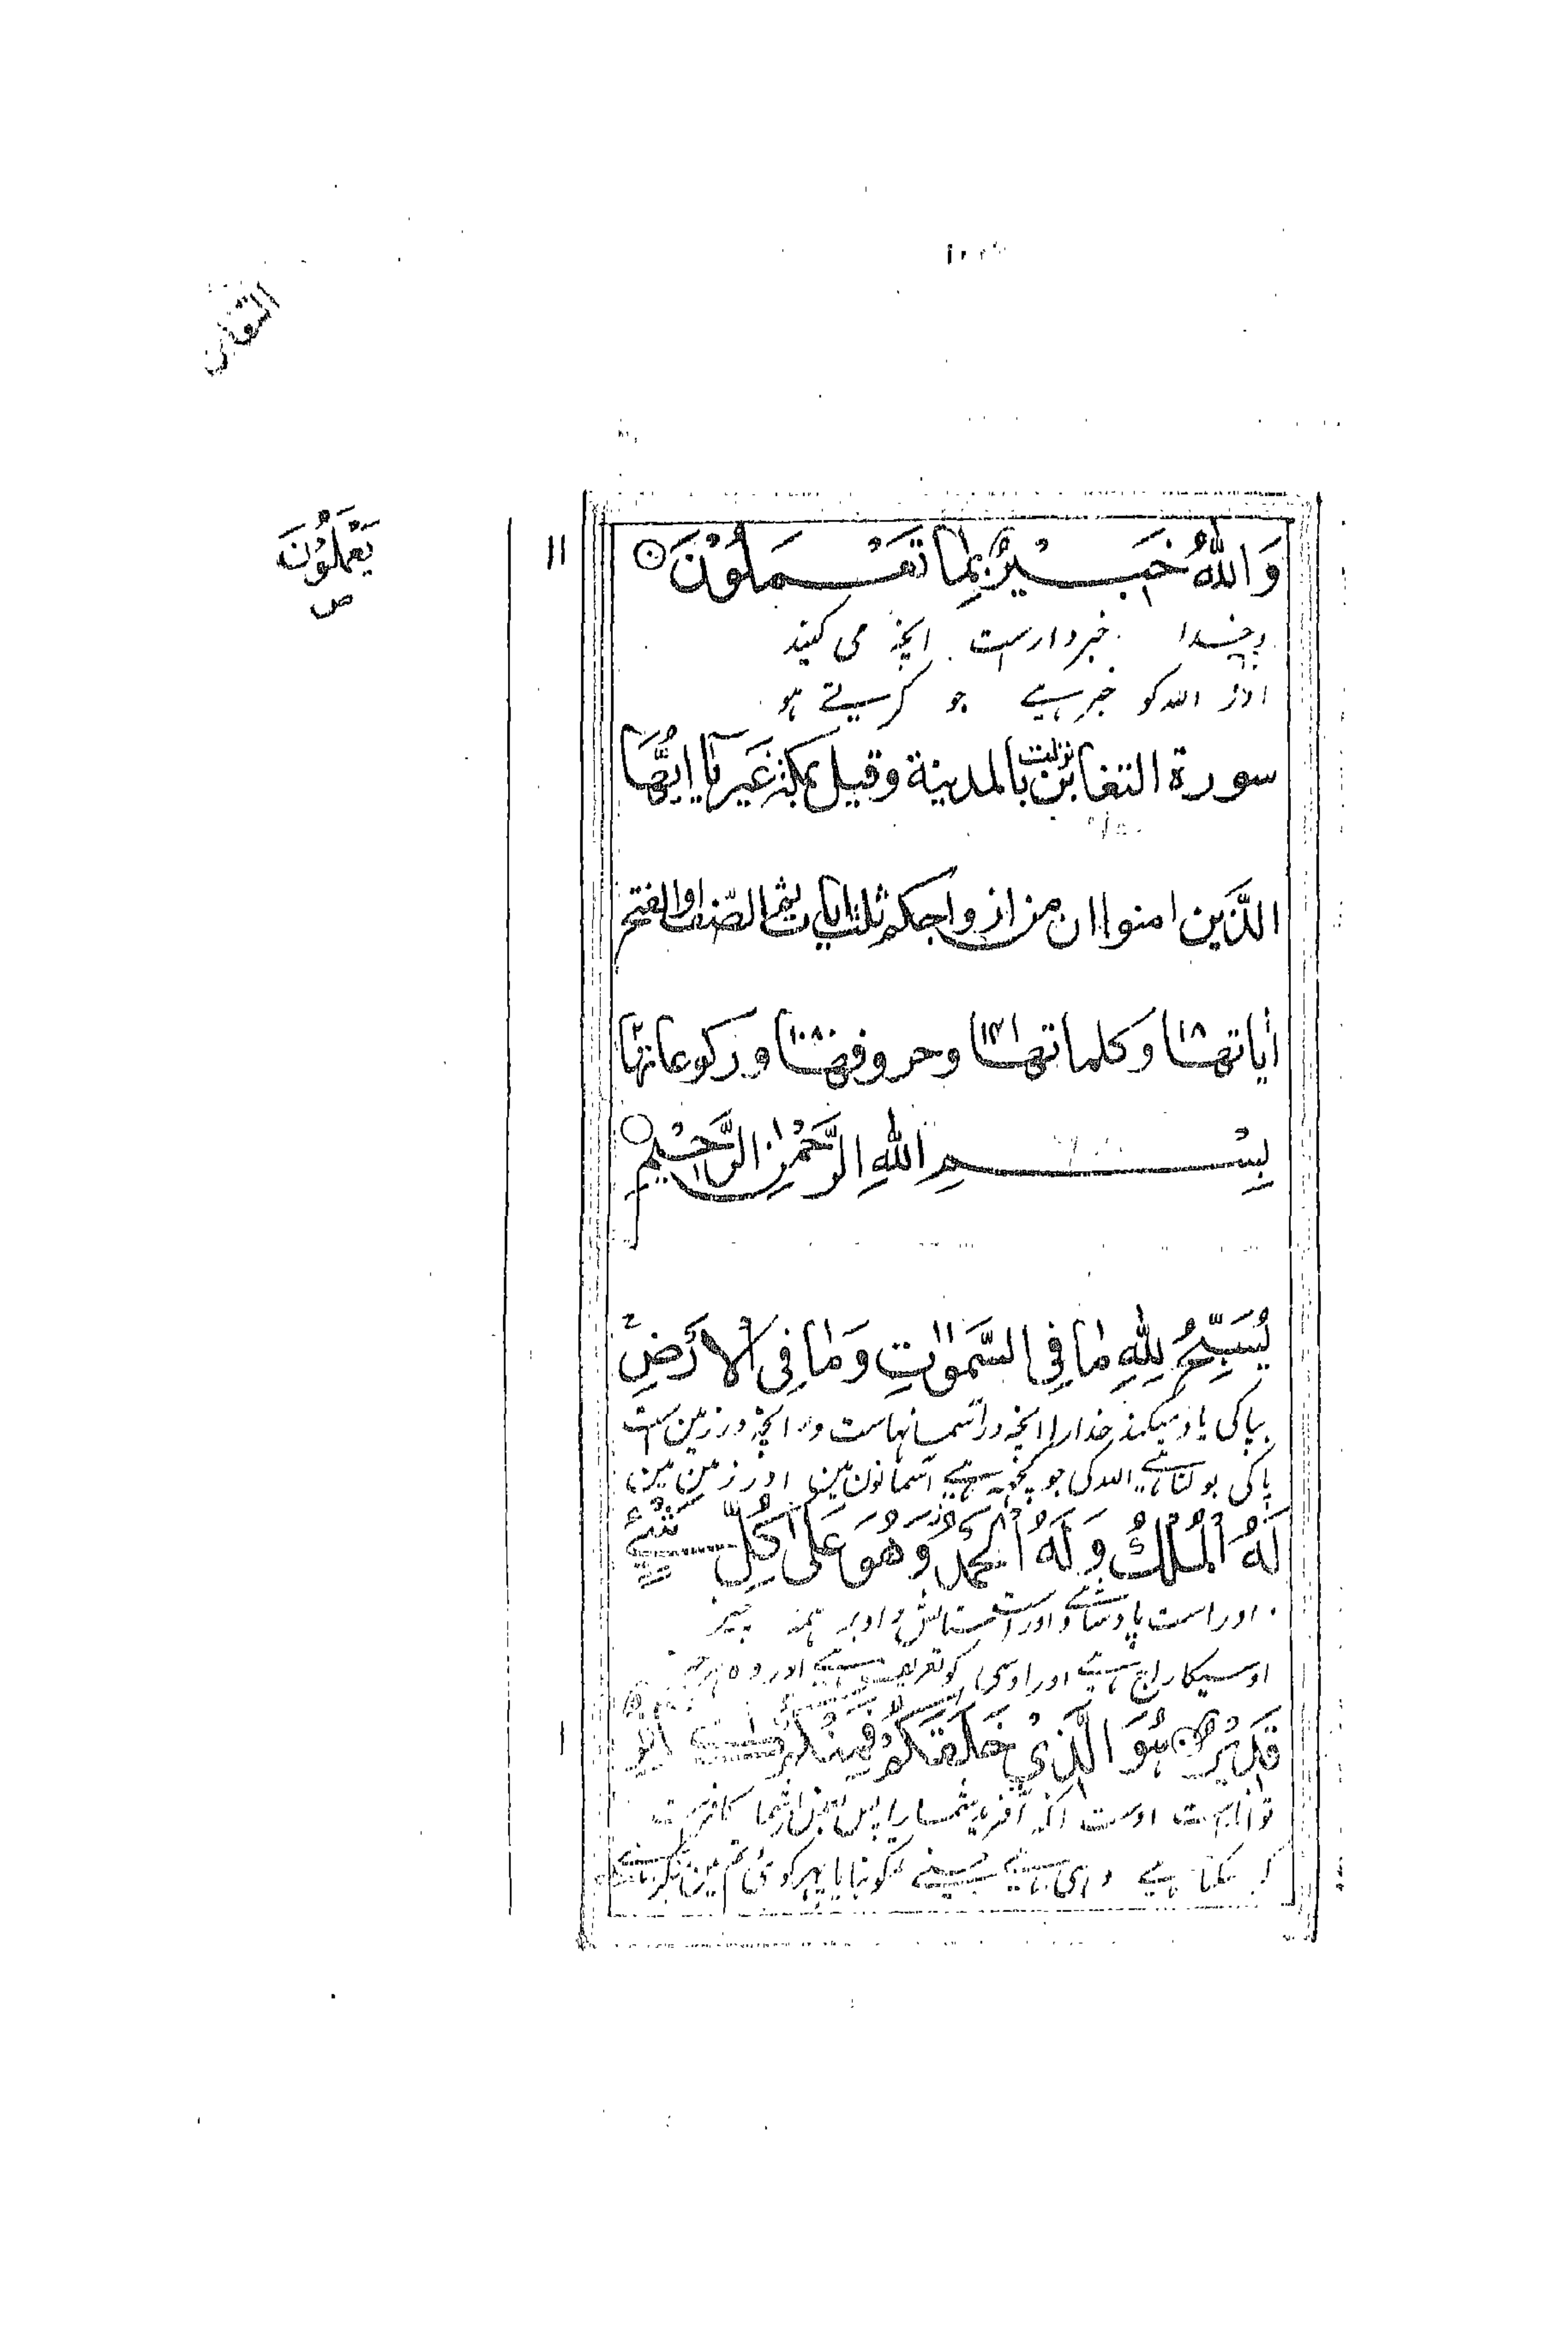 التغابن
وَاللّٰهُ خَبِيْرٌۢ بِمَا تَعْمَلُوْنَ ۝
۱۱
يَعْمَلُوْنَ
ص
وخدا خبردارست انچه می کنید
اور الله کو خبر ہے جو کرتے ہو
سورة التغابن نزلت بالمدينة وقيل بمكة غير يا ايّها
الّذين امنوا ان من ازواجكم ثلث ايات ثم الصّف او الفتح
اٰياتها ۱۸ وكلماتها وحروفها وركوعاتها ۲
بِسْمِ اللّٰهِ الرَّحْمٰنِ الرَّحِيْمِ
يُسَبِّحُ لِلّٰهِ مَا فِي السَّمٰوٰتِ وَمَا فِي الْاَرْضِ ۚ
بپاکی یاد میکند خدا را انچه در آسمانهاست و انچه در زمین ست
پاکی بولتا ہے الله کی جو کچھ ہے آسمانون مین اور زمین مین
لَهُ الْمُلْكُ وَلَهُ الْحَمْدُ ز وَهُوَ عَلٰى كُلِّ شَيْءٍ
اوراست پادشاہے و اوراست ستایش و او بر ہمہ چیز
اوسیکا راج ہے اور اوسی کو تعریف ہے اور وہ ہر چیز
قَدِيْرٌ ۝ هُوَ الَّذِيْ خَلَقَكُمْ فَمِنْكُمْ
۱
تواناست اوست آنکہ آفرید شما را پس بعض از شما کافرست
کر سکتا ہے وہی ہے جسنے تمکو بنایا پہر کوئی تم مین منکر ہے